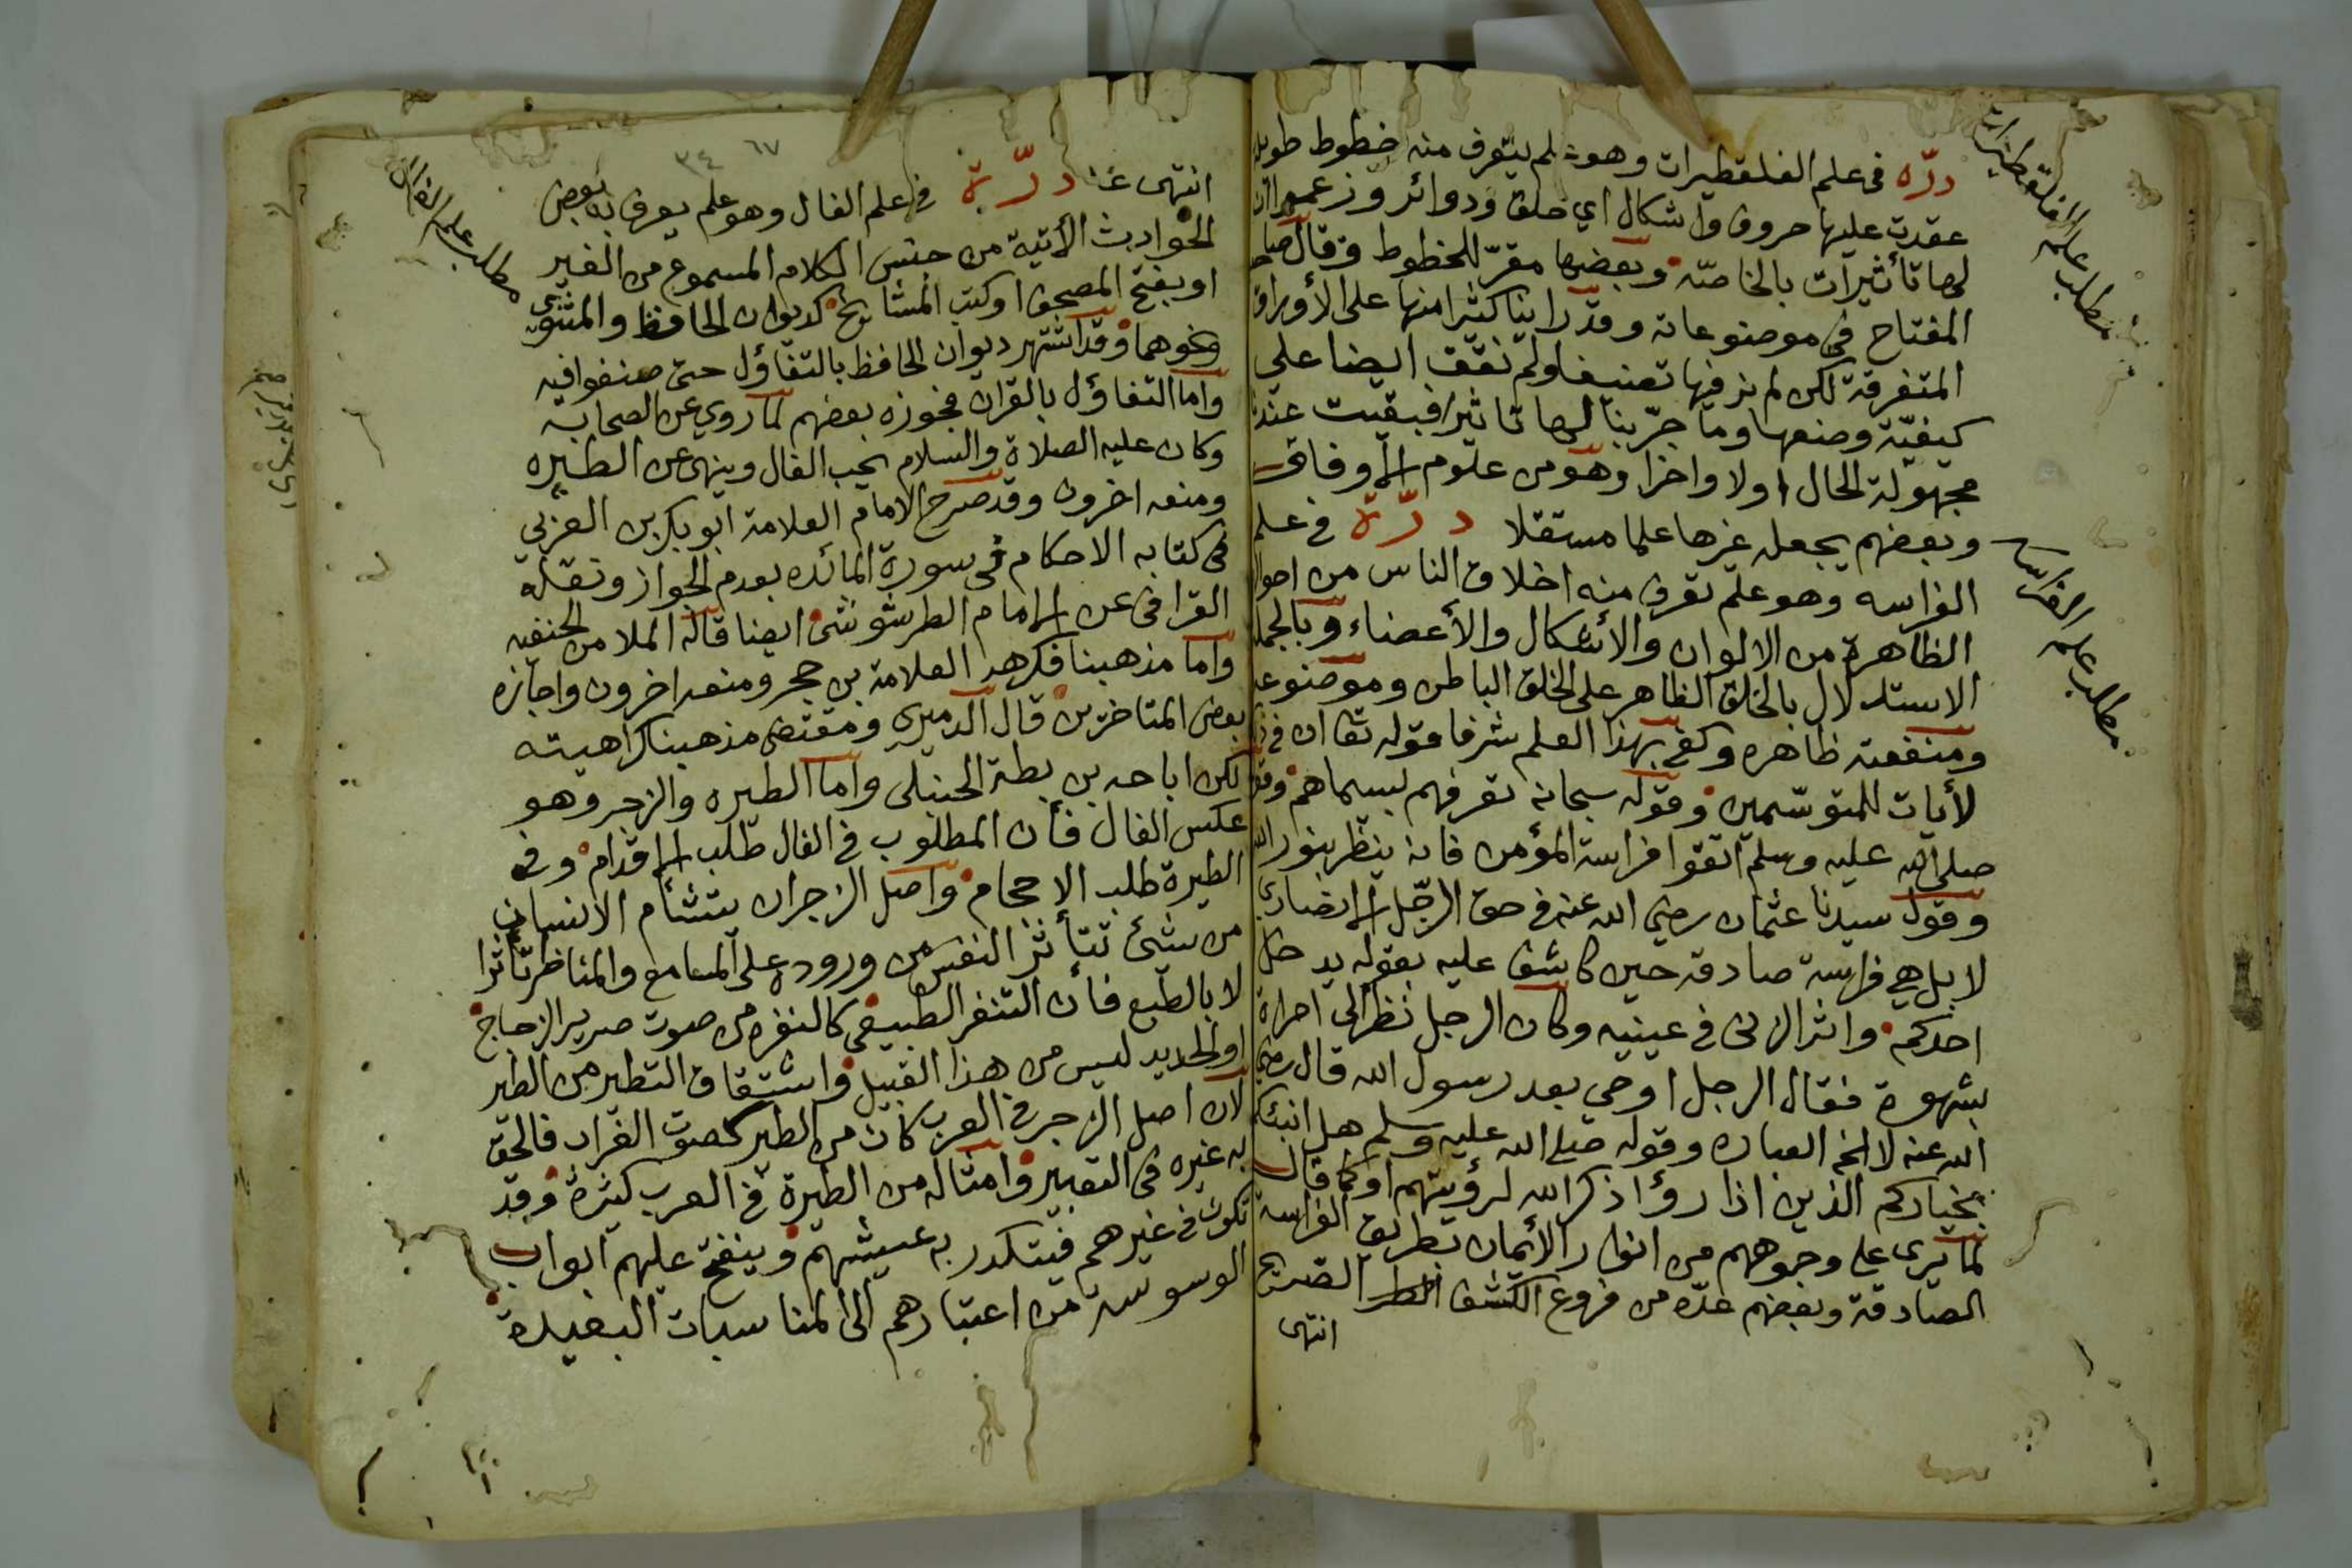 درّه فى علم الفلقطيرات وهو علم يتعرف منه خطوط طويلة
عقدت عليها حروف واشكال اي حلق ودوائر وزعموا ان
لها تأثيرات بالخاصّه وبعضها مقرّ للخطوط وقال صاحب
المفتاح في موضوعاته وقد راينا كثرا منها على الأوراق
المتفرقة لكن لم نر فيها تصنيفا ولم نقف ايضا على
كيفيّة وضعها وما جرّبنا لها تاثيرا فبقيت عندنا
مجهولة الحال اولا واخرا وهو من علوم الأوفاق
وبعضهم يجعله غيرها علما مستقلا درّة في علم
الفراسه وهو علم تعرف منه اخلاق الناس من احوال
الظاهرة من الالوان والأشكال والأعضاء وبالجملة
الاستدلال بالخلق الظاهر على الخلق الباطن وموضوعه
ومنفعته ظاهره وكفى بهذا العلم شرفا قوله تعا ان في ذلك
لأيات للمتوسّمين وقوله سبحانه تعرفهم بسيماهم وقوله
صلى الله عليه وسلم اتقوا فراسة المؤمن فانه ينظر بنور الله
وقول سيدنا عثمان رضي الله عنه في حق الرجّل الانصاري
لا بل هي فراسة صادقه حين كاشف عليه بقوله يدخل
احدكم واثر الزنى في عينيه وكان الرجل نظر الى امراة
بشهوة فقال الرجل اوحي بعد رسول الله قال رضي
الله عنه لا الخ العباره وقوله صلى الله عليه وسلم هل انبئكم
بخياركم الذين اذا رؤا ذكر الله لرؤيتهم اوكما قال
لما يرى على وجوههم من انوار الأيمان بطريق الفراسة
الصادقة وبعضهم عدّه من فروع الكشف الصريح
انتهى
مطلب علم الفلقطيرات
مطلب علم الفراسه
٦٧
٣٤
انتهى درّة في علم الفال وهو علم يعرف به بعض
الحوادث الأتية من جنس الكلام المسموع من الغير
او بفتح المصحف او كتب المشايخ كديوان الحافظ والمثنوي
ونحوهما وقد اشتهر ديوان الحافظ بالتفاؤل حتى صنفوا فيه
واما التفاؤل بالقران فجوزه بعضهم لما روي عن الصحابة
وكان عليه الصلاة والسلام يحب الفال وينهى عن الطيره
ومنعه اخرون وقد صرح الامام العلامة ابو بكر بن العربي
في كتابه الاحكام في سورة المائده بعدم الجواز ونقله
القرافى عن الامام الطرشوشى ايضا قاله الملا من الحنفيه
واما مذهبنا فكرهه العلامة بن حجر ومنعه اخرون واجازه
بعض المتاخرين قال الدميري ومقتضى مذهبنا كراهيته
لكن اباحه بن بطة الحنبلى واما الطيره والزجر وهو
عكس الفال فأن المطلوب في الفال طلب الاقدام وفي
الطيرة طلب الاحجام واصل الزجر ان يتشأم الانسان
من شئ تتأثر النفس من وروده على المسامع والمناظر تأثرا
لا بالطبع فأن التنفر الطبيعى كالنفره من صوت صرير الزجاج
او الحديد ليس من هذا القبيل واشتقاق التطير من الطير
لان اصل الزجر في العرب كان من الطير كصوت الغراب فالحق
به غيره فى التعبير وامثاله من الطيرة في العرب كثرة وقد
تكون في غيرهم فيتكدر به عيشهم وينفتح عليهم ابواب
الوسوسة من اعتبارهم الى المناسبات البعيدة
مطلب علم الفال